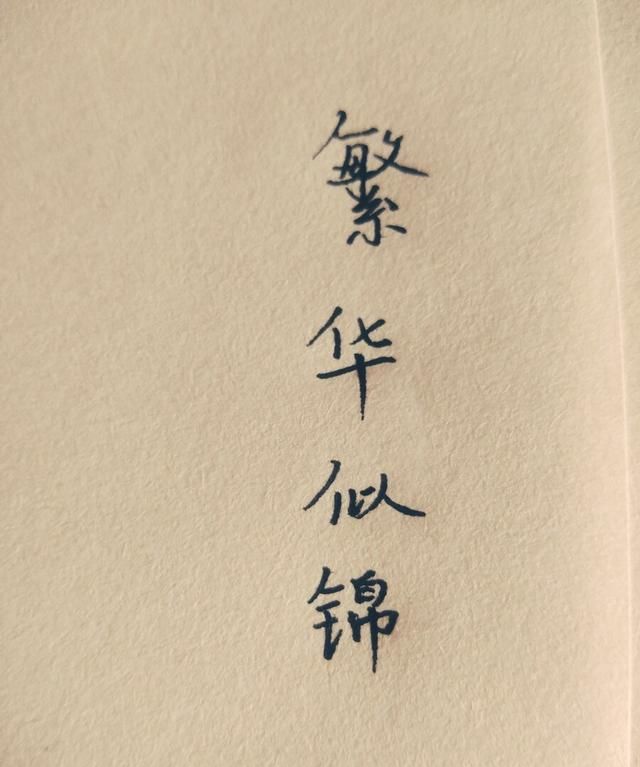 繁华似锦